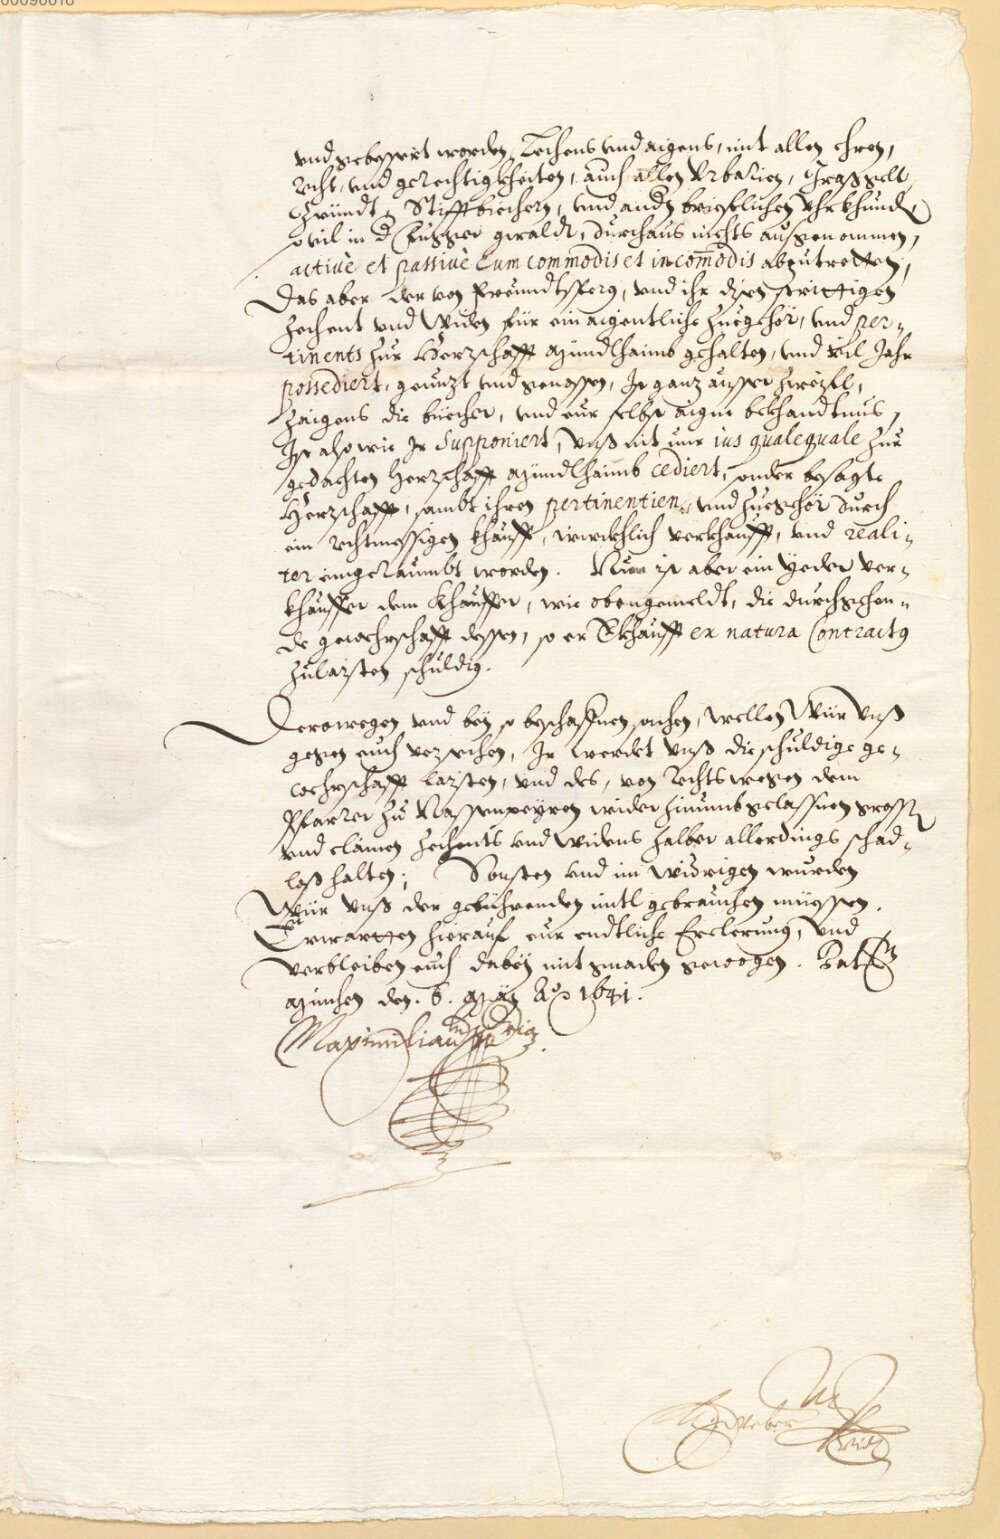 00096618
vnd gebessert worden, Lehens vnd aigens, mit allen ehren,
recht, vnd gerechtigkheiten, auch allen Vrbarien,
Gründt, Stifftbiechern, vnd andern brieflichen Vhrkhunden
souil in der gewaldt, durchaus nichts aussgenommen,
actiuè et passiuè cum commodis et incom̄odis abzutretten,
Das aber der von Freundtsperg, vnd ihr disen strittigen
Zechent vnd Widen für ein aigentliche Zuegehör, vnd per-
tinents zur Herrschafft Mündlhaimb gehalten, vnd vil Jahr
possediert, genuzt vnd genossen, Ist ganz ausser zweifl,
Zaigens die biecher, vnd eur selbst aigne bekhandtnus,
Ist also wie Ir supponiert, vnss nit nur ius qualequale zur
gedachten Herrschafft Mündlhaimb cediert, sonder besagte
Herrschafft, sambt ihren pertinentien, vnd Zuegehör durch
ein rechtmessigen khauff, würckhlich verkhaufft, vnd reali-
ter eingeraumbt worden. Nun ist aber ein Yeder ver-
khauffer dem Khauffer, wie obengemeldt, die durchgehen-
de gewehrschafft dessen, so er Ekhaufft ex natura Contractus
zulaisten schuldig.
Derowegen vnd bey so beschaffnen sachen, wellen Wür Vnss
gegen euch versechen, Ir werdet vnss die schuldige ge-
wehrschafft laisten, vnd des, von Rechts wegen dem
Pfarrer zu Nassenpeyren wider hinumbgelassnen gross
vnd clainen Zechents vnd Widens halber allerdings schad-
loss halten; Sonsten vnd im widrigen wurden
Wür Vnss der gebührenden mitl gebrauchen müessen.
Erwartten hierauf eur endtliche Erclerung, Vnd
verbleiben euch dabey mit gnaden gewogen. Dat
München den. 6. May Ao 1641.
Maximilian